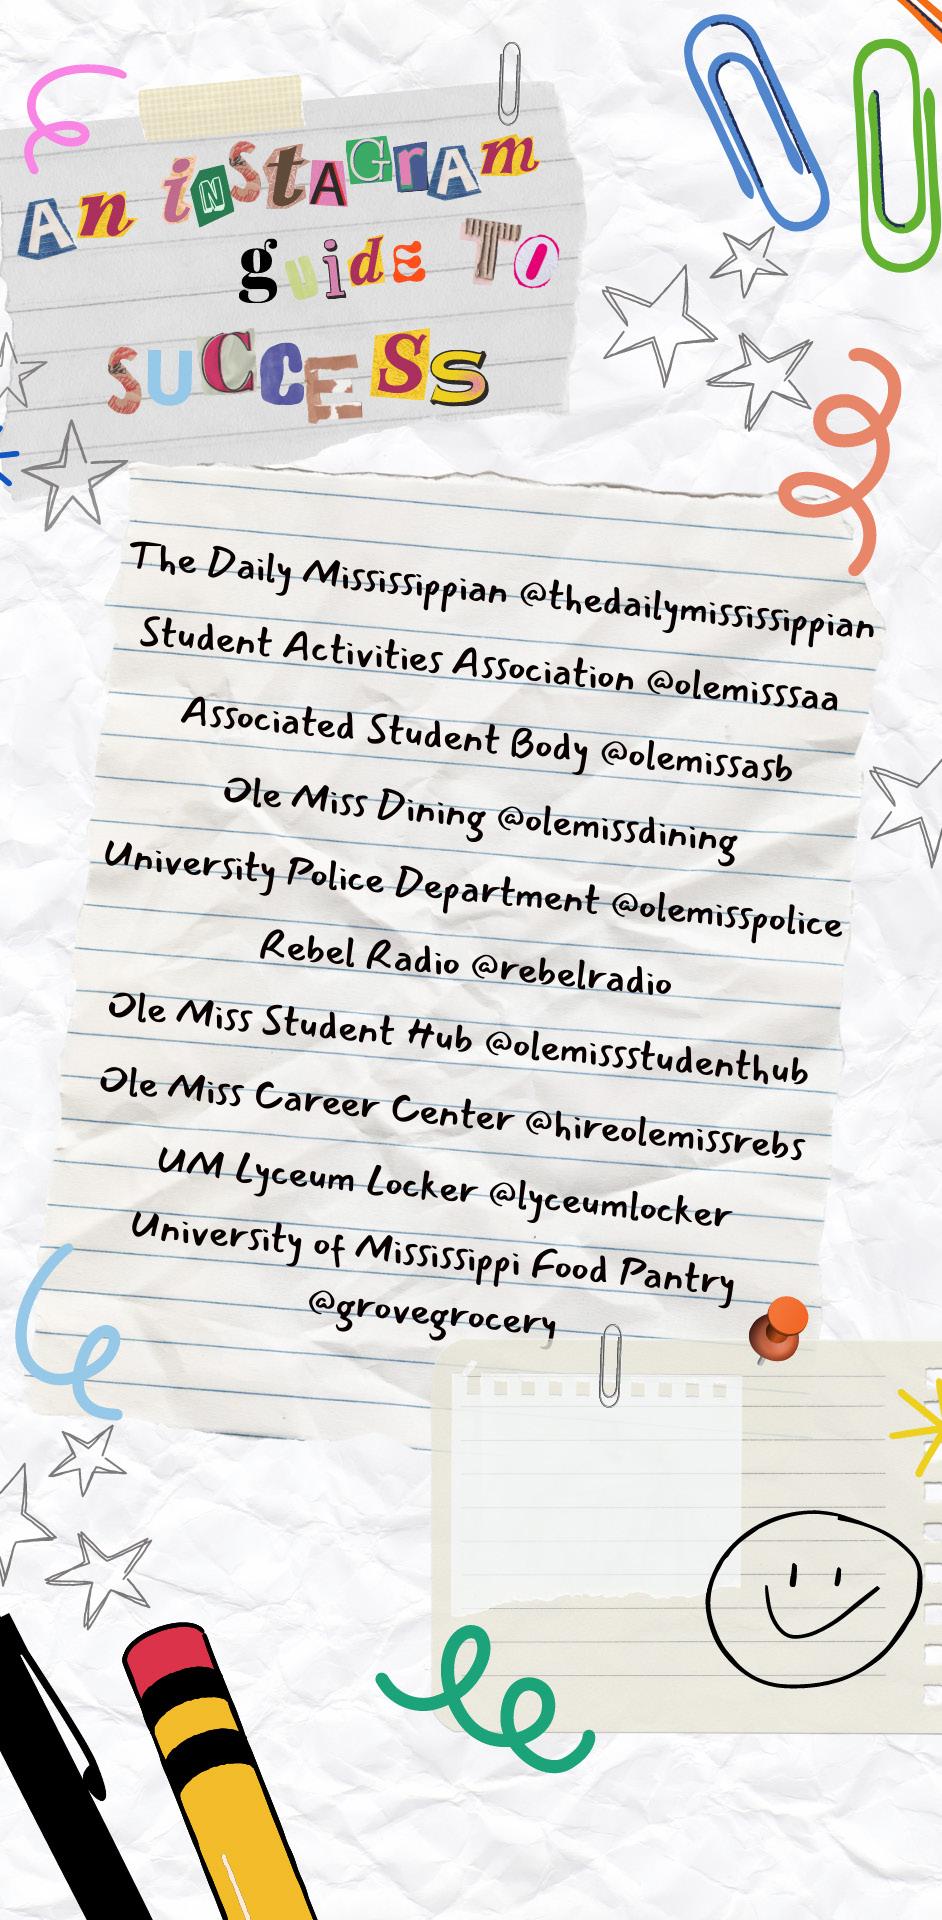 An inStAGrAm
guidE TO
SUCCESS
The Daily Mississippian @thedailymississippian
Student Activities Association @olemisssaa
Associated Student Body @olemissasb
Ole Miss Dining @olemissdining
University Police Department @olemisspolice
Rebel Radio @rebelradio
Ole Miss Student Hub @olemissstudenthub
Ole Miss Career Center @hireolemissrebs
UM Lyceum Locker @lyceumlocker
University of Mississippi Food Pantry
@grovegrocery